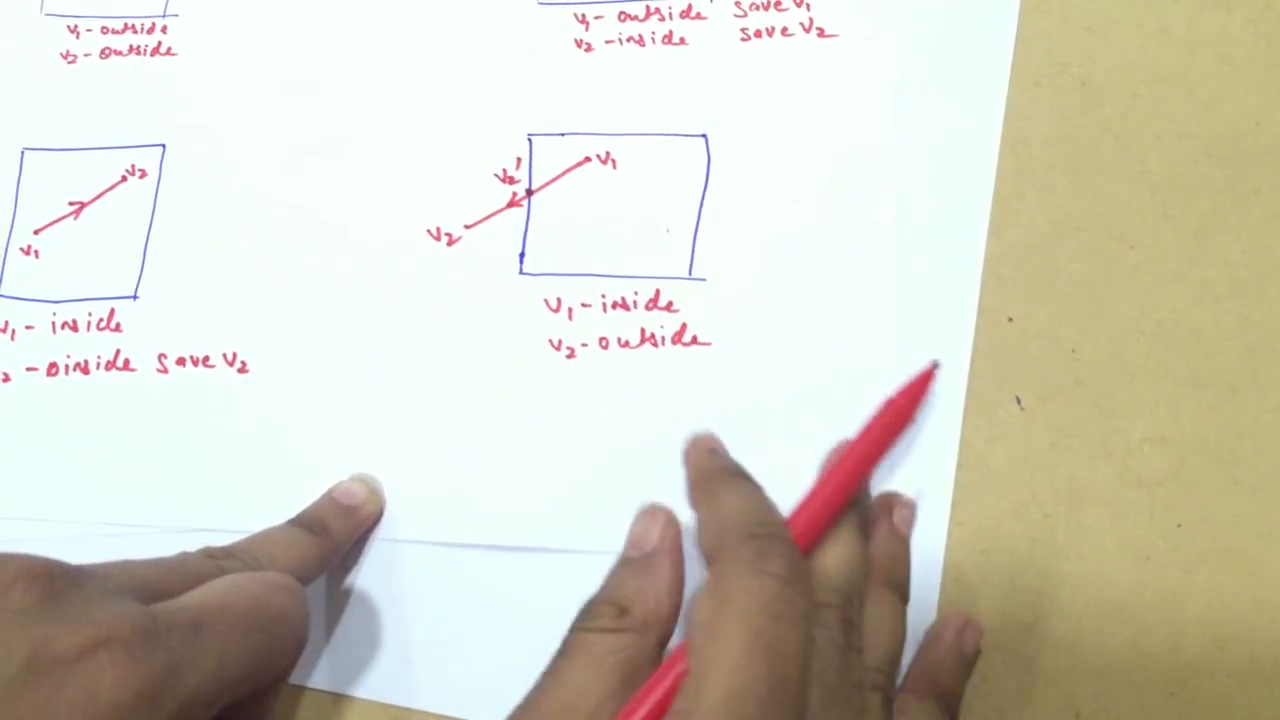 V1 - outside
V2 - outside
V1 - outside save V1'
V2 - inside save V2
V2
V1
V1 - inside
2 - oinside save V2
V1
V2'
V2
V1 - inside
V2 - outside